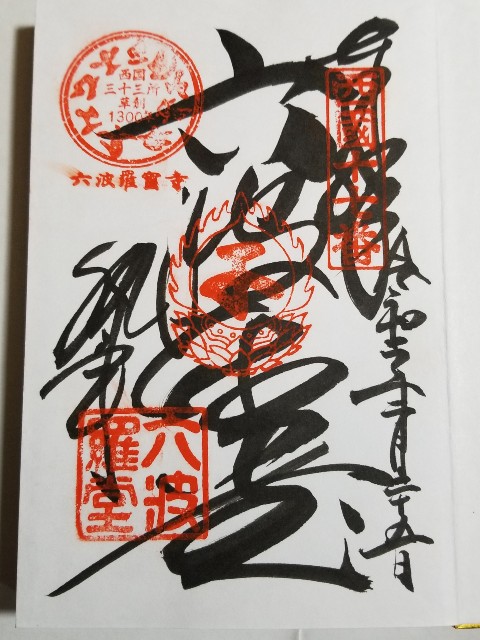 奉拝
西國十七番
令和二年十月二十五日
六波羅堂
西国
三十三所
草創
1300年
六波羅蜜寺
六波
羅堂